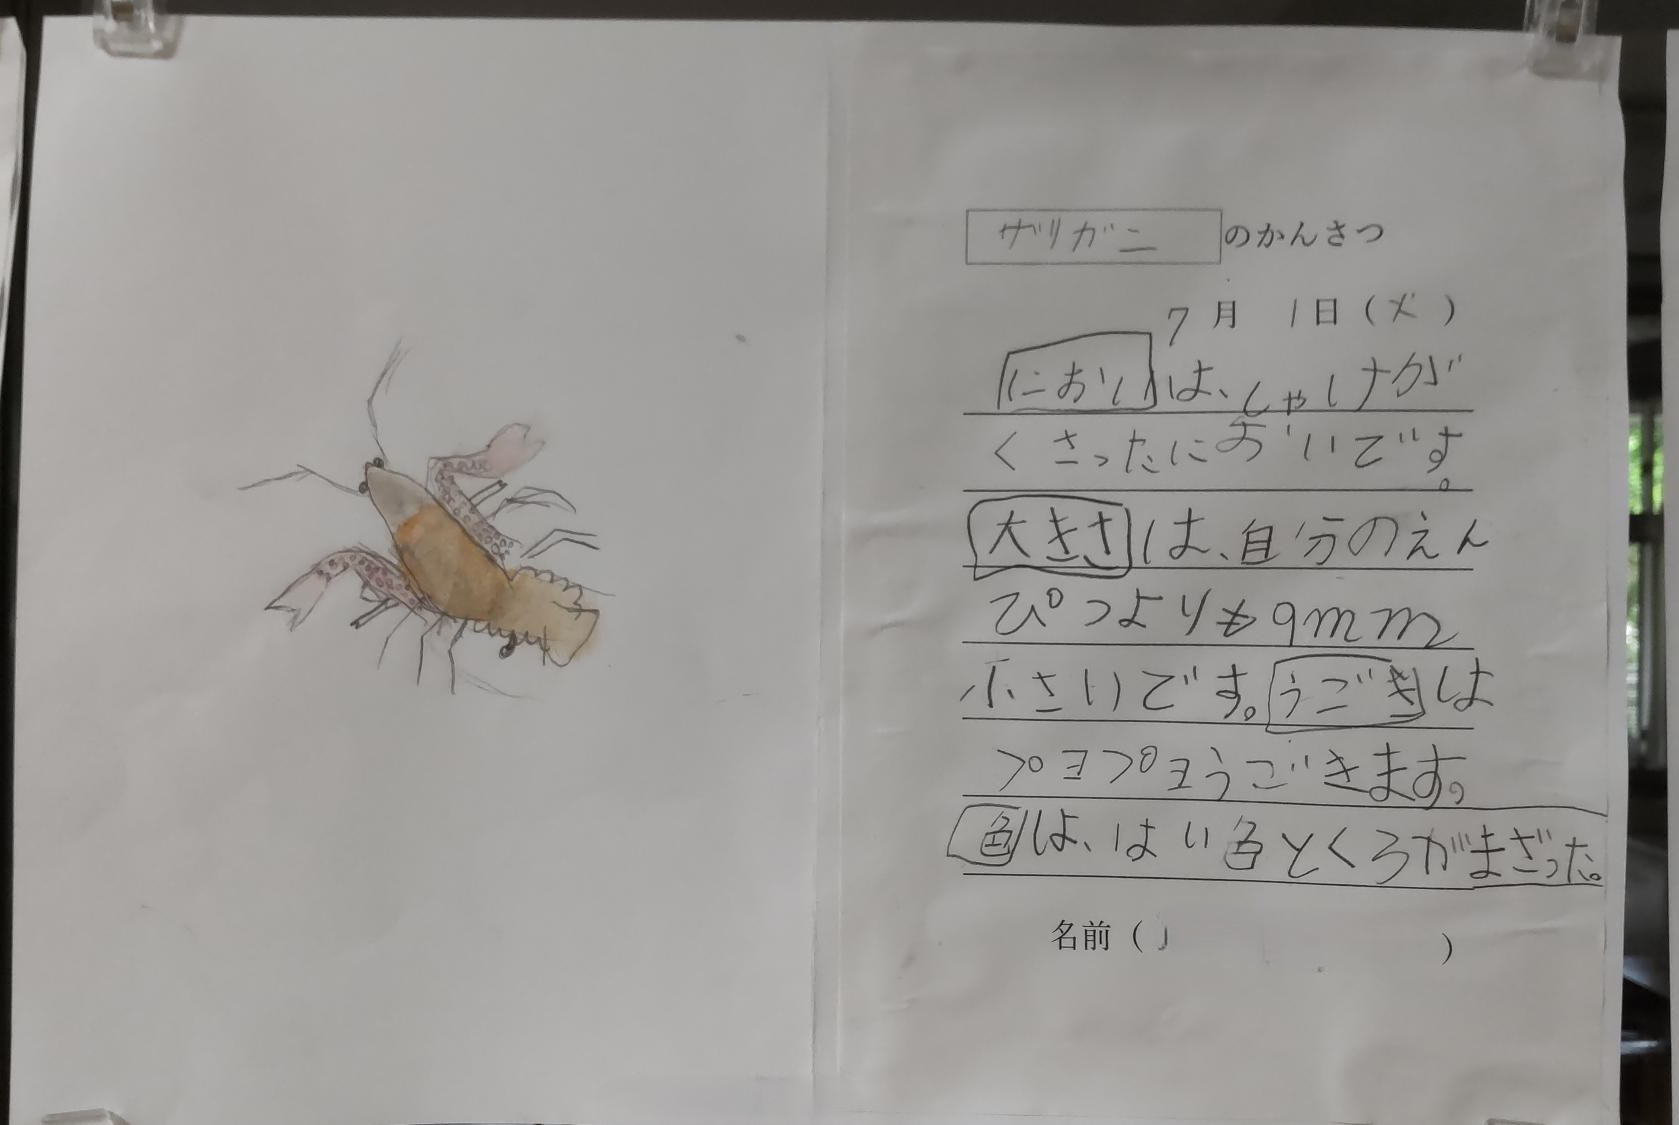 ザリガニのかんさつ
7月 1日(火)
においは、しゃけが
くさったにおいです。
大きさは、自分のえん
ぴつよりも9mm
小さいです。うごきは
プヨプヨうごきます。
色は、はい色とくろがまざった。
名前( )